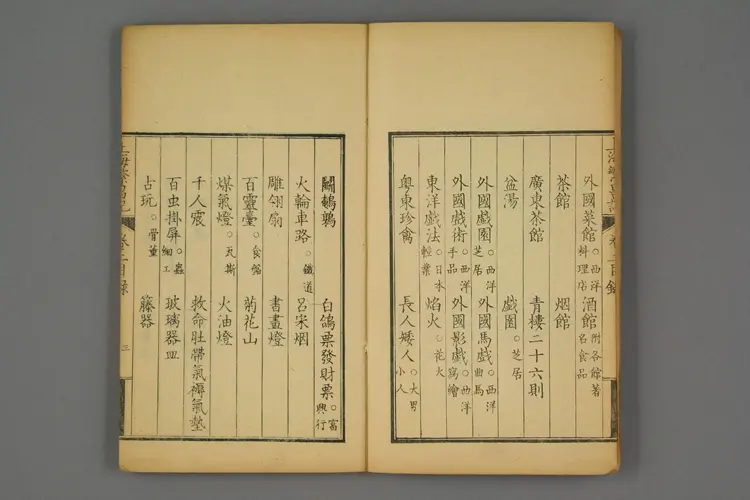 外國菜館○西洋料理店 酒館附各館著名食品
茶館 烟館
廣東茶館 青樓二十六則
盆湯 戲園○芝居
外國戲園○西洋芝居 外國馬戲○西洋曲馬
外國戲術○西洋手品 外國影戲○西洋寫繪
東洋戲法○日本輕業 焰火○花火
粵東珍禽 長人矮人○大男小人
鬬鵪鶉 白鴿票發財票○富興行
火輪車路○鐵道 呂宋烟
雕翎扇 書畫燈
百靈臺○食船 菊花山
煤氣燈○瓦斯 火油燈
千人震 救命肚帶氣褥氣墊
百虫掛屏○蟲細工 玻璃器皿
古玩○骨董 籐器
卷二目錄
三